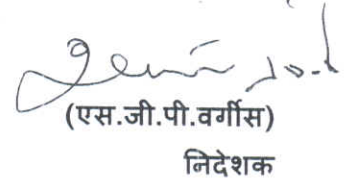 (एस.जी.पी.वर्गीस)
निदेशक